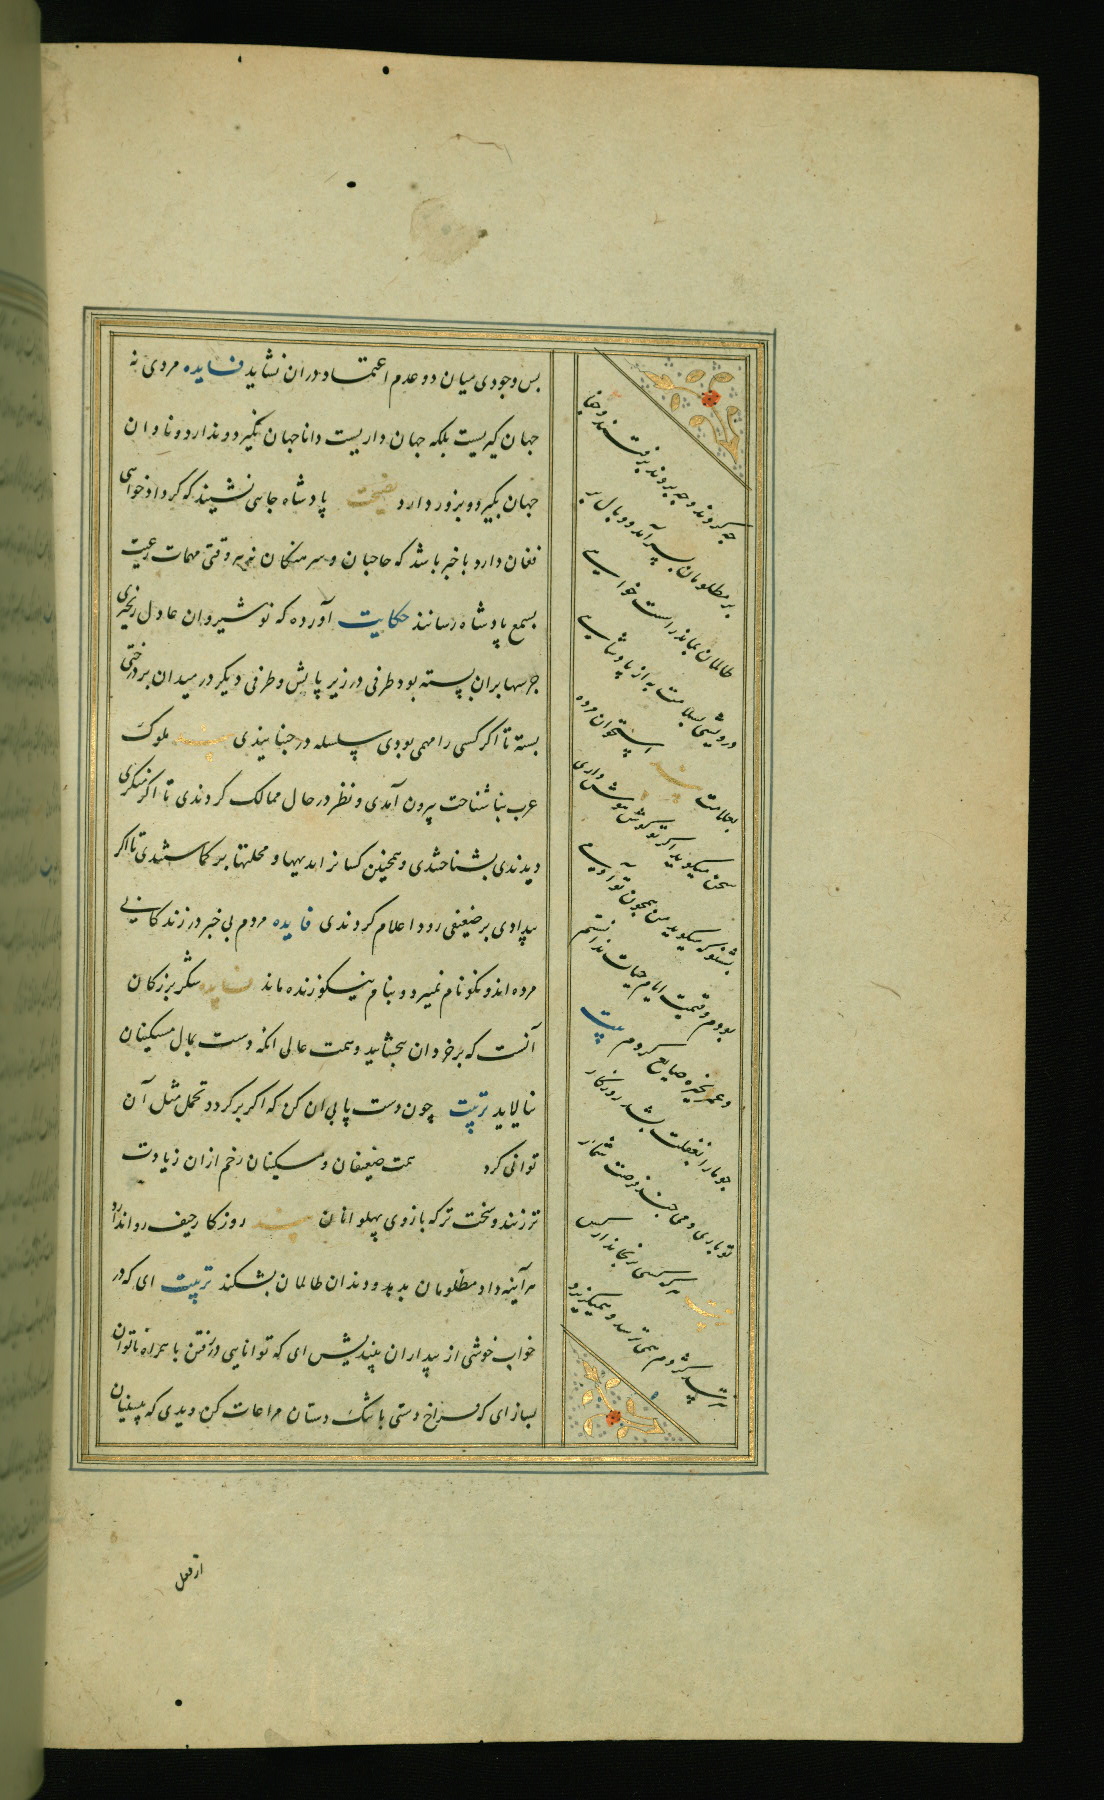 بس وجودی میان دو عدم اعتماد دران نشاید فایده مردی نه
جهان گیریست بلکه جهان داریست دانا جهان بگیرد و بدارد و نادان
جهان بگیرد و بزور دارد نصیحت پادشاه جایی نشیند که گر دادخواهی
فغان دارد باخبر باشد که حاجبان و سرهنگان نه هر وقتی مهمات رعیت
بسمع پادشاه رسانند حکایت آورده که نوشیروان عادل زنجیری
جرسها بران بسته بود طرفی در زیر بالش و طرفی دیگر در میدان بر درختی
بسته تا اگر کسی را مهمی بودی سلسله در جنبانیدی پند ملوک
عرب بناشناخت بیرون آمدی و نظر در حال ممالک کردندی تا اگر منکری
دیدندی بشناختندی و همچنین کسانرا بدیهها و محلتها بر گماشتندی تا اگر
بیدادی بر ضعیفی رود اعلام کردندی فایده مردم بی خبر در زندگانی
مرده اند و نکونام نمیرد و بنام نیکو زنده ماند فایده شکر بزرگان
آنست که بر خردان ببخشاید و همت عالی انکه دست بمال مسکینان
نیالاید تربیت چون دست یابی ان کن که اگر بر گردد تحمل مثل آن
توانی کرد همت ضعیفان و مسکینان زخم ازان زیادت
تر زنند و سخت تر که بازوی پهلوانان پند روزگار حیف روا ندارد
هر آینه داد مظلومان بدهد و دندان ظالمان بشکند تربیت ای که در
خواب خوشی از بیداران بیندیش ای که توانایی در رفتن با همراه ناتوان
بساز ای که فراخ دستی با تنگ دستان مراعات کن دیدی که پیشینیان
چه کردند و چه بردند برفتند و جفا
بر مظلومان بسر آمد و وبال بر
ظالمان بماند راست خواهی
درویشی بسلامت به از پادشاهی
بعلامت پند استخوان مرده
سخن میگوید اگر تو گوش هوش داری
بشنو که میگوید من همچون تو آدمی
بودم و قیمت ایام حیات ندانستم
و عمر بخیره ضایع کردم بیت
چو ما را بغفلت بشد روزگار
تو باری دمی چند فرصت شمار
هر که کسی رنجاند از کس
ازفعل